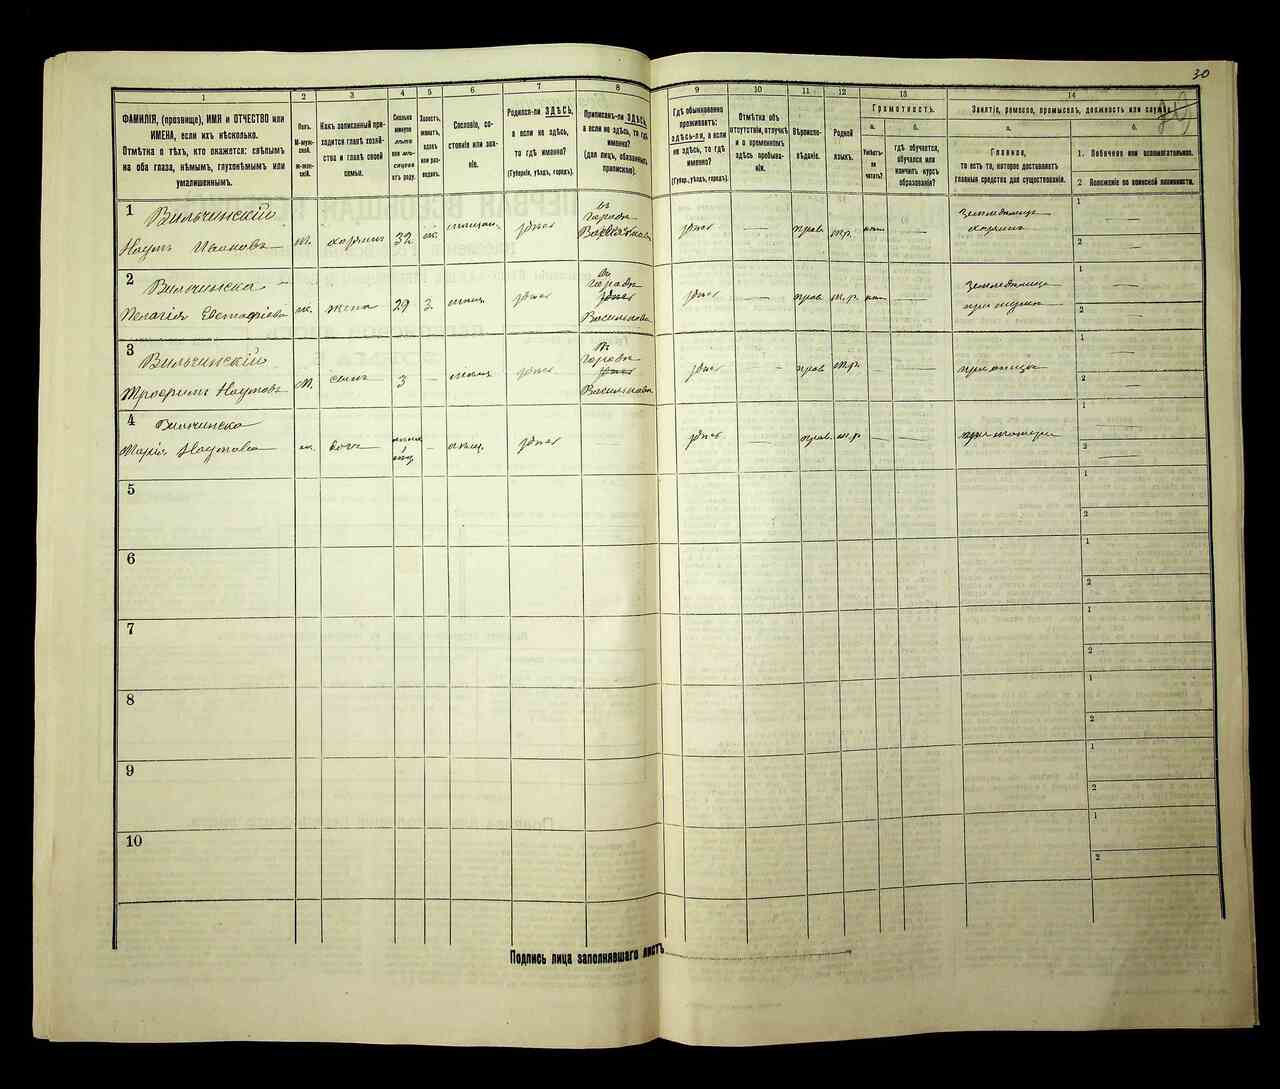 30
1
2
3
4
5
6
7
8
9
10
11
12
13
14
ФАМИЛІЯ, (прозвище), ИМЯ и ОТЧЕСТВО или
ИМЕНА, если ихъ нѣсколько.
Отмѣтка о тѣхъ, кто окажется: слѣпымъ
на оба глаза, нѣмымъ, глухонѣмымъ или
умалишеннымъ.
Полъ.
М-муж-
ской.
ж-жен-
скій.
Какъ записанный при-
ходится главѣ хозяй-
ства и главѣ своей
семьи.
Сколько
минуло
лѣтъ
или мѣ-
сяцевъ
отъ роду.
Холостъ,
женатъ,
вдовъ
или раз-
веденъ.
Сословіе, со-
стояніе или зва-
ніе.
Родился-ли ЗДѢСЬ,
а если не здѣсь,
то гдѣ именно?
(Губернія, уѣздъ, городъ).
Приписанъ-ли ЗДѢСЬ,
а если не здѣсь, то гдѣ
именно?
(для лицъ, обязанныхъ
припискою).
Гдѣ обыкновенно
проживаетъ:
здѣсь-ли, а если
не здѣсь, то гдѣ
именно?
(Губер., уѣздъ, городъ).
Отмѣтка объ
отсутствіи, отлучкѣ
и о временномъ
здѣсь пребыва-
ніи.
Вѣроиспо-
вѣданіе.
Родной
языкъ.
Грамотность.
а.
Умѣетъ-
ли
читать?
б.
гдѣ обучается,
обучался или
кончилъ курсъ
образованія?
Занятіе, ремесло, промыселъ, должность или служба.
а.
Главное,
то есть то, которое доставляетъ
главныя средства для существованія.
б.
1. Побочное или вспомогательное.
2 Положеніе по воинской повинности.
1
Вильчинскій
Наумъ Ивановъ
м. хозяинъ 32 ж. здѣсь
въ
городѣ
Васильковѣ
здѣсь — прав. м.р.
земледѣлецъ
хозяинъ
1
2
2
Вильчинска
Пелагія Евстафіева
ж. жена 29 з. мѣщ. здѣсь
въ
городѣ
здѣсь
Васильковѣ
здѣсь — прав м.р.
земледѣлица
при мужѣ
1
2
3
Вильчинскій
Трофимъ Наумовъ
м. сынъ 3 — мѣщ здѣсь
въ
городѣ
здѣсь
Васильковѣ
здѣсь — прав м.р.
при отцѣ
1
2
4
Вильчинска
Марія Наумова
ж. дочь — мѣщ. здѣсь
здѣсь — прав. м.р — —
при матери
1
2
5
1
2
6
1
2
7
1
2
8
1
2
9
1
2
10
1
2
Подпись лица заполнявшаго листъ